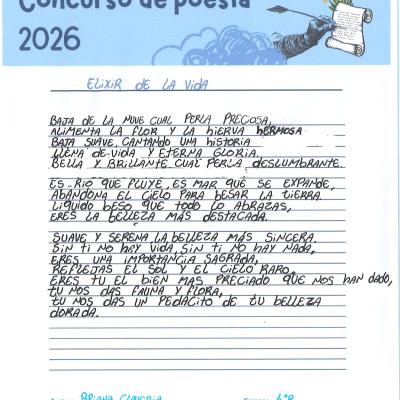 Concurso de poesía
2026
ELIXIR DE LA VIDA
BAJA DE LA NUVE CUAL PERLA PRECIOSA,
ALIMENTA LA FLOR Y LA HIERVA HERMOSA
BAJA SUAVE, CANTANDO UNA HISTORIA
LLENA DE VIDA Y ETERNA GLORIA.
BELLA Y BRILLANTE CUAL PERLA DESLUMBRANTE.
ES RIO QUE FLUYE, ES MAR QUE SE EXPANDE,
ABANDONA EL CIELO PARA BESAR LA TIERRA
LIQUIDO BESO QUE TODO LO ABRAZAS,
ERES LA BELLEZA MÁS DESTACADA.
SUAVE Y SERENA, LA BELLEZA MÁS SINCERA.
SIN TI NO HAY VIDA, SIN TI NO HAY NADA,
ERES UNA IMPORTANCIA SAGRADA,
REFLEJAS EL SOL Y EL CIELO RARO,
ERES TU EL BIEN MAS PRECIADO QUE NOS HAN DADO,
TU NOS DAS FAUNA Y FLORA,
TU NOS DAS UN PEDACITO DE TU BELLEZA
DORADA.
BRIANA